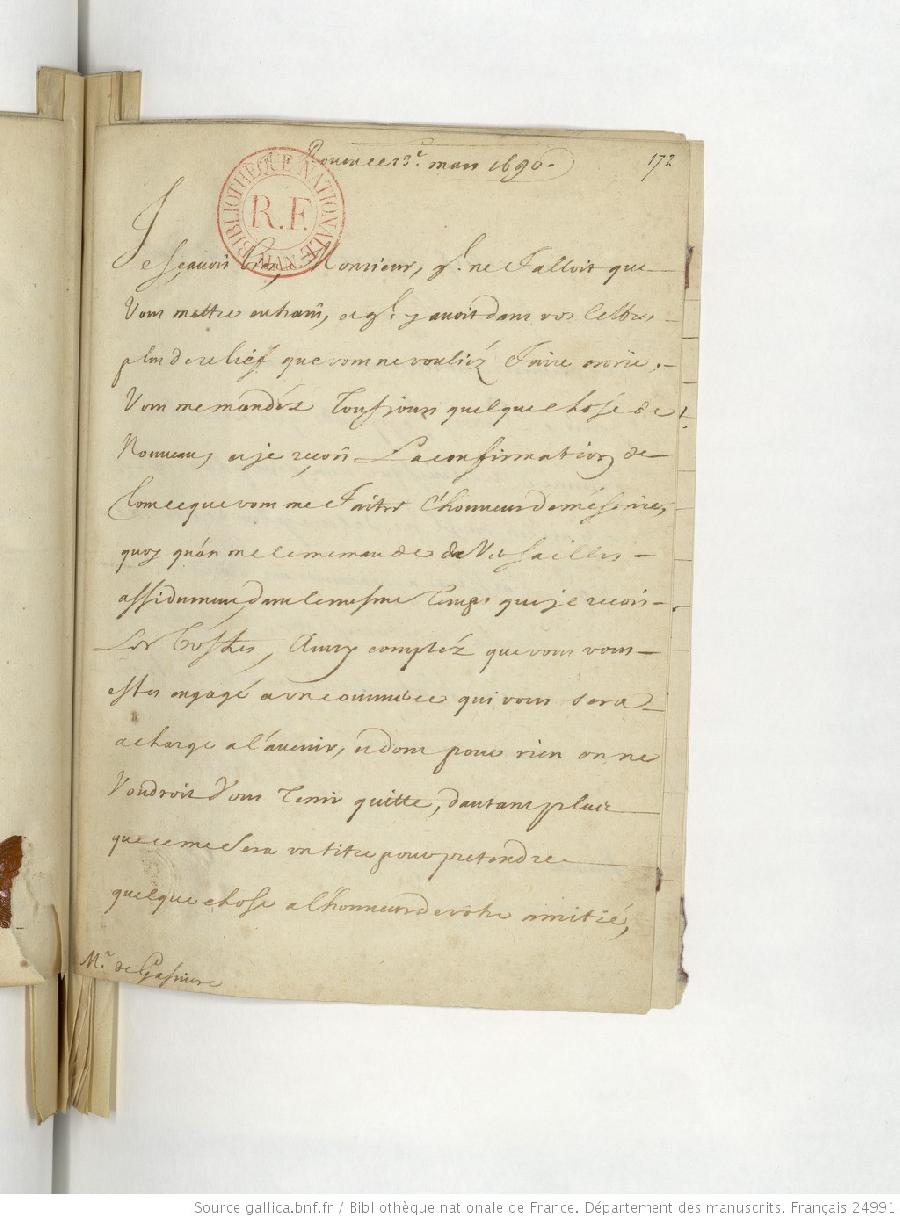 Rouen ce 13e. mars 1690.
172
BIBLIOTHEQUE NATIONALE
R.F.
MAN.
Je sçavois bien, Monsieur, ql. ne falloit que
Vous mettre en train, et ql. y avoit dans vos lettres
plus de relief que vous ne vouliéz faire croire,
Vous me mandéz Tousjours quelque chose de
Nouveau, et je reçois La confirmation de
Tout ce que vous me faites l'honneur de m'éscrire,
quoy qu'on me le mande de Versailles
assidument, dans le mesme Temps que je reçois
Vos lettres, Ainsy comptéz que vous vous
estes engagé a une corvée qui vous sera
a charge a l'avenir, et dont pour rien on ne
Voudroit Vous Tenir quitte, dautant plus
que ce me sera un titre pour pretendre
quelque chose a l'honneur de vostre amitié,
Mr. de
Source gallica.bnf.fr / Bibliothèque nationale de France. Département des manuscrits. Français 24991